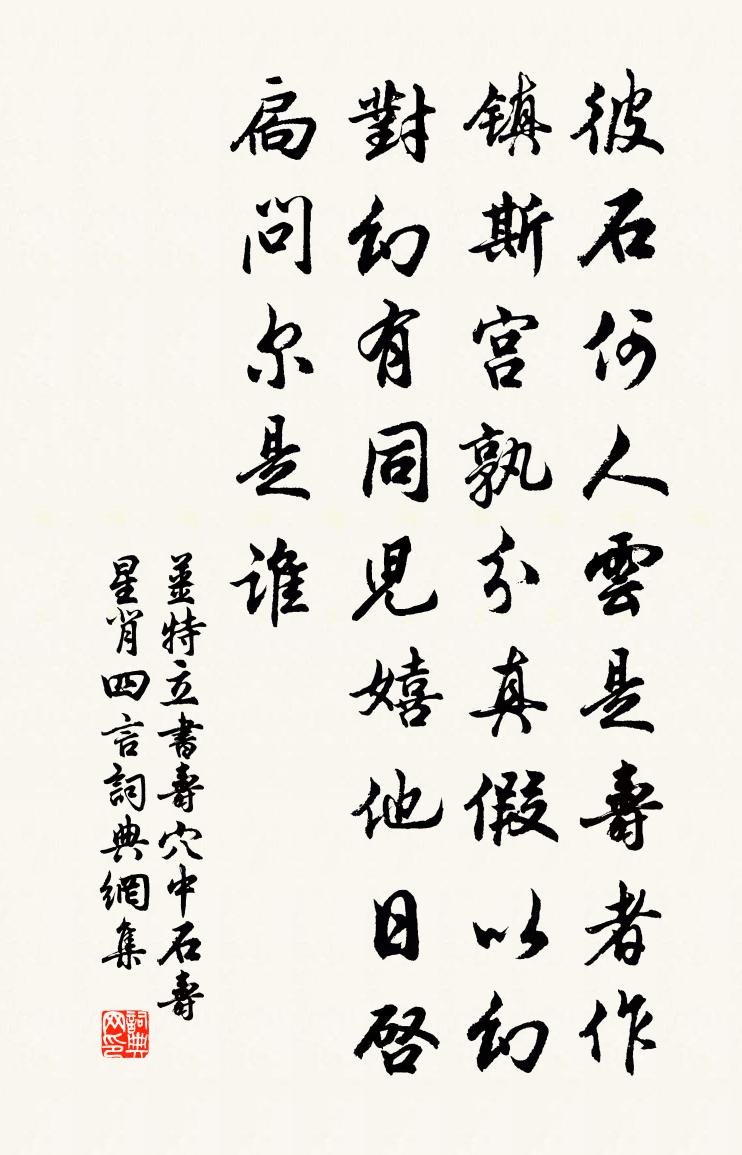 彼石何人雲是壽者作
镇斯宫孰分真假以幻
對幻有同児嬉他日啓
扃問尔是誰
薑特立書壽穴中石壽
星肖四言詞典網集
詞典网印